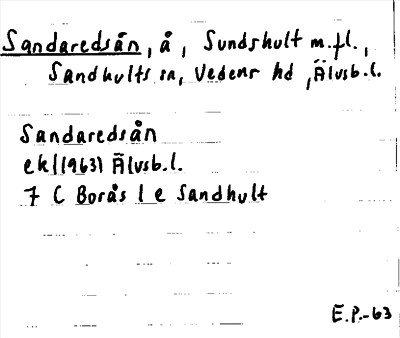 Sandaredsån, å, Sundshult m.fl.,
Sandhults sn, Vedens hd, Älvsb.l.
Sandaredsån
ekl(1963) Älvsb.l.
7 C Borås l e Sandhult
E.P.-63